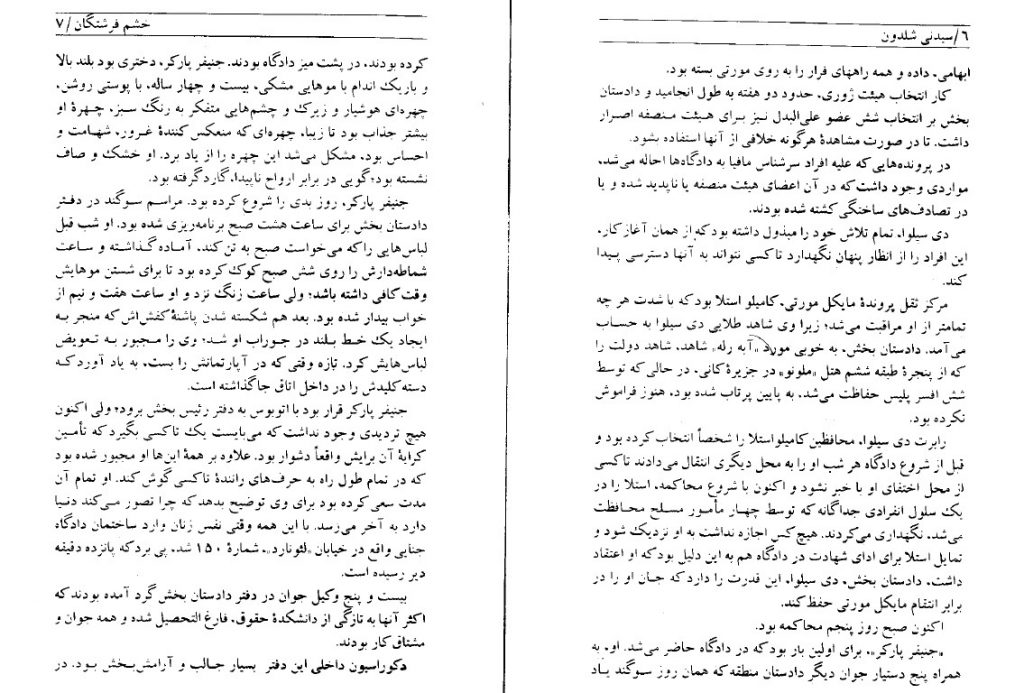 ۶/سیدنی شلدون
ابهامی، داده و همه راههای فرار را به روی مورتی بسته بود.
کار انتخاب هیئت ژوری، حدود دو هفته به طول انجامید و دادستان
بخش بر انتخاب شش عضو علی‌البدل نیز برای هیئت منصفه اصرار
داشت. تا در صورت مشاهدهٔ هرگونه خلافی از آنها استفاده بشود.
در پرونده‌هایی که علیه افراد سرشناس مافیا به دادگاه‌ها احاله می‌شد،
مواردی وجود داشت که در آن اعضای هیئت منصفه یا ناپدید شده و یا
در تصادف‌های ساختگی کشته شده بودند.
دی سیلوا، تمام تلاش خود را مبذول داشته بود که از همان آغاز کار،
این افراد را از انظار پنهان نگهدارد تا کسی نتواند به آنها دسترسی پیدا
کند.
مرکز ثقل پروندهٔ مایکل مورتی، کامیلو استلا بود که با شدت هر چه
تمامتر از او مراقبت می‌شد؛ زیرا وی شاهد طلایی دی سیلوا به حساب
می‌آمد. دادستان بخش، به خوبی مورد «آبه رله» شاهد، شاهد دولت را
که از پنجرهٔ طبقه ششم هتل «ملونو» در جزیرهٔ کانی، در حالی که توسط
شش افسر پلیس حفاظت می‌شد، به پایین پرتاب شده بود، هنوز فراموش
نکرده بود.
رابرت دی سیلوا، محافظین کامیلو استلا را شخصاً انتخاب کرده بود و
قبل از شروع دادگاه هر شب او را به محل دیگری انتقال می‌دادند تا کسی
از محل اختفای او با خبر نشود و اکنون با شروع محاکمه، استلا را در
یک سلول انفرادی جداگانه که توسط چهار مأمور مسلح محافظت
می‌شد، نگهداری می‌کردند. هیچ کس اجازه نداشت به او نزدیک شود و
تمایل استلا برای ادای شهادت در دادگاه هم به این دلیل بود که او اعتقاد
داشت، دادستان بخش، دی سیلوا، این قدرت را دارد که جان او را در
برابر انتقام مایکل مورتی حفظ کند.
اکنون صبح روز پنجم محاکمه بود.
«جنیفر پارکر»، برای اولین بار بود که در دادگاه حاضر می‌شد. او، به
همراه پنج دستیار جوان دیگر دادستان منطقه که همان روز سوگند یاد
خشم فرشتگان /۷
کرده بودند، در پشت میز دادگاه بودند. جنیفر پارکر، دختری بود بلند بالا
و باریک اندام با موهایی مشکی، بیست و چهار ساله، با پوستی روشن،
چهره‌ای هوشیار و زیرک و چشم‌هایی متفکر به رنگ سبز، چهرهٔ او
بیشتر جذاب بود تا زیبا، چهره‌ای که منعکس کنندهٔ غرور، شهامت و
احساس بود، مشکل می‌شد این چهره را از یاد برد. او خشک و صاف
نشسته بود؛ گویی در برابر ارواح ناپیدا، گارد گرفته بود.
جنیفر پارکر، روز بدی را شروع کرده بود. مراسم سوگند در دفتر
دادستان بخش برای ساعت هشت صبح برنامه‌ریزی شده بود. او شب قبل
لباس‌هایی را که می‌خواست صبح به تن کند، آماده گذاشته و ساعت
شماطه‌دارش را روی شش صبح کوک کرده بود تا برای شستن موهایش
وقت کافی داشته باشد؛ ولی ساعت زنگ نزد و او ساعت هفت و نیم از
خواب بیدار شده بود. بعد هم شکسته شدن پاشنهٔ کفش‌اش که منجر به
ایجاد یک خط بلند در جوراب او شد؛ وی را مجبور به تعویض
لباس‌هایش کرد، تازه وقتی که در آپارتمانش را بست، به یاد آورد که
دسته کلیدش را در داخل اتاق جا گذاشته است.
جنیفر پارکر قرار بود با اتوبوس به دفتر رئیس بخش برود؛ ولی اکنون
هیچ تردیدی وجود نداشت که می‌بایست یک تاکسی بگیرد که تأمین
کرایهٔ آن برایش واقعاً دشوار بود. علاوه بر همهٔ این‌ها او مجبور شده بود
که در تمام طول راه به حرف‌های رانندهٔ تاکسی گوش کند. او تمام آن
مدت سعی کرده بود برای وی توضیح بدهد که چرا تصور می‌کند دنیا
دارد به آخر می‌رسد. با این همه وقتی نفس زنان وارد ساختمان دادگاه
جنایی واقع در خیابان «لئونارد»، شمارهٔ ۱۵۰ شد، پی برد که پانزده دقیقه
دیر رسیده است.
بیست و پنج وکیل جوان در دفتر دادستان بخش گرد آمده بودند که
اکثر آنها به تازگی از دانشکدهٔ حقوق، فارغ التحصیل شده و همه جوان و
مشتاق کار بودند.
دکوراسیون داخلی این دفتر بسیار جالب و آرامش‌بخش بود. در